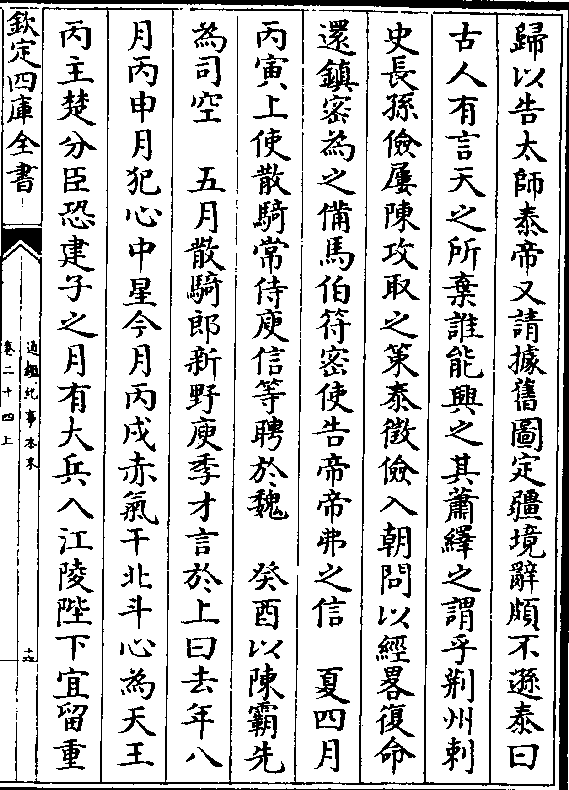 歸以告太師泰帝又請據舊圖定疆境辭頗不遜泰曰
古人有言天之所棄誰能興之其蕭繹之謂乎荆州刺
史長孫儉屢陳攻取之策泰徵儉入朝問以經畧復命
還鎮密為之備馬伯符密使告帝帝弗之信　夏四月
丙寅上使散騎常侍庾信等聘於魏　癸酉以陳霸先
為司空　五月散騎郎新野庾季才言於上曰去年八
月丙申月犯心中星今月丙戌赤氣干北斗心為天王
丙主楚分臣恐建子之月有大兵入江陵陛下宜留重
欽定四庫全書
通鑑紀事本末
卷二十四上